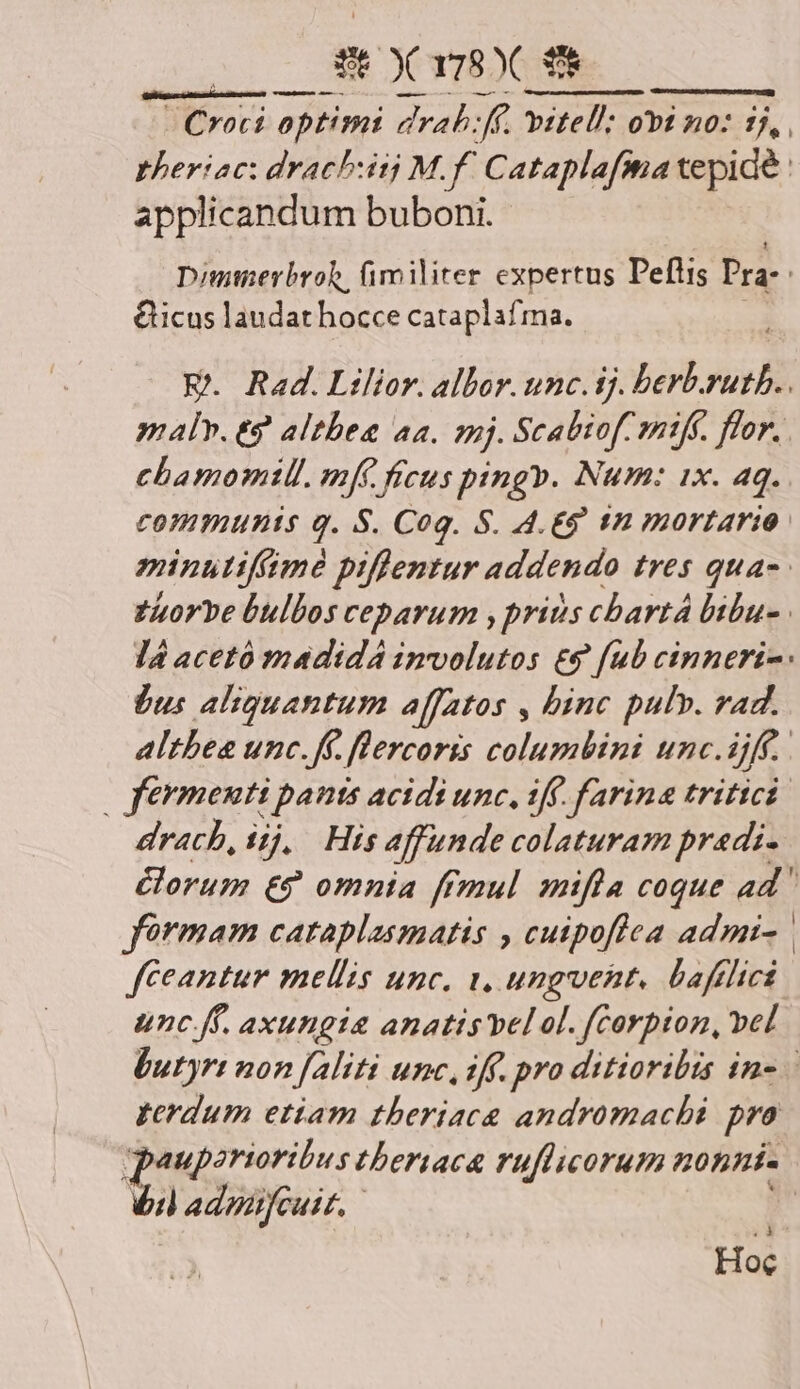 )( 178 )(
Croci optimi drab:ſſ. vitell: ovi no: ij,
theriac: drach:iij M. f. Cataplaſma tepidè
applicandum buboni.
Dimmerbrok, ſimiliter expertus Peſtis Pra-
cticus laudat hocce cataplaſma.
℞. Rad. Lilior. albor. unc. ij. herb. ruth.
malv. & altheæ aa. mj. Scabioſ. miſſ. flor.
chamomill. mſſ. ficus pingv. Num: ıx. aq.
communis q. S. Coq. S. A. & in mortario
minutiſſimè piſtentur addendo tres qua-
tuorve bulbos ceparum , priùs chartâ bibu-
lâ acetô madidâ involutos & ſub cinneri-
bus aliquantum aſſatos , hinc pulv. rad.
altheæ unc. ſſ. ſtercoris columbini unc. ijſſ.
fermenti panis acidi unc, iſſ. farinæ tritici
drach, iij, His affunde colaturam prædi-
ctorum & omnia ſimul miſta coque ad
formam cataplasmatis , cuipoſtea admi-
ſceantur mellis unc. ı, ungvent, baſilici
unc. ſſ. axungiæ anatis vel ol. ſcorpion, vel
butyri non ſaliti unc, iſſ. pro ditioribis in-
terdum etiam theriacæ andromachi pro
pauperioribus theriacæ ruſticorum nonni-
bil admiſcuit.
Hoc